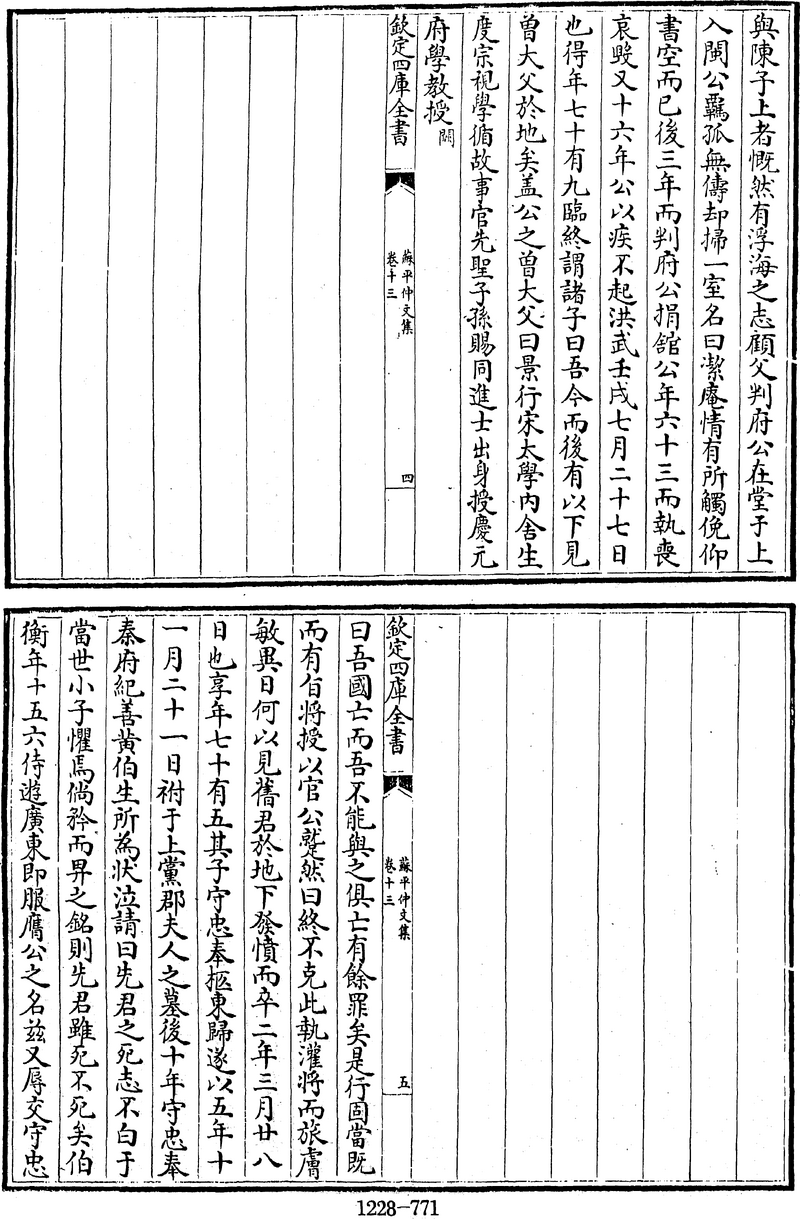 與陳子上者慨然有浮海之志顧父判府公在堂于上
入閩公羈孤無儔却掃一室名曰潔庵情有所觸俛仰
書空而已後三年而判府公捐舘公年六十三而執喪
哀毁又十六年公以疾不起洪武壬戌七月二十七日
也得年七十有九臨終謂諸子曰吾今而後有以下見
曾大父於地矣蓋公之曾大父曰景行宋太學內舍生
度宗視學循故事官先聖子孫賜同進士出身授慶元
府學教授闕
欽定四庫全書
蘇平仲文集
卷十三
四
欽定四庫全書
蘇平仲文集
卷十三
五
曰吾國亡而吾不能與之俱亡有餘罪矣是行固當既
而有旨將授以官公蹵然曰終不克此執灌將而旅膚
敏異日何以見舊君於地下發憤而卒二年三月廿八
日也享年七十有五其子守忠奉柩東歸遂以五年十
一月二十一日祔于上黨郡夫人之墓後十年守忠奉
秦府紀善黄伯生所為狀泣請曰先君之死志不白于
當世小子懼焉倘矜而畀之銘則先君雖死不死矣伯
衡年十五六侍遊廣東即服膺公之名兹又辱交守忠
1228-771